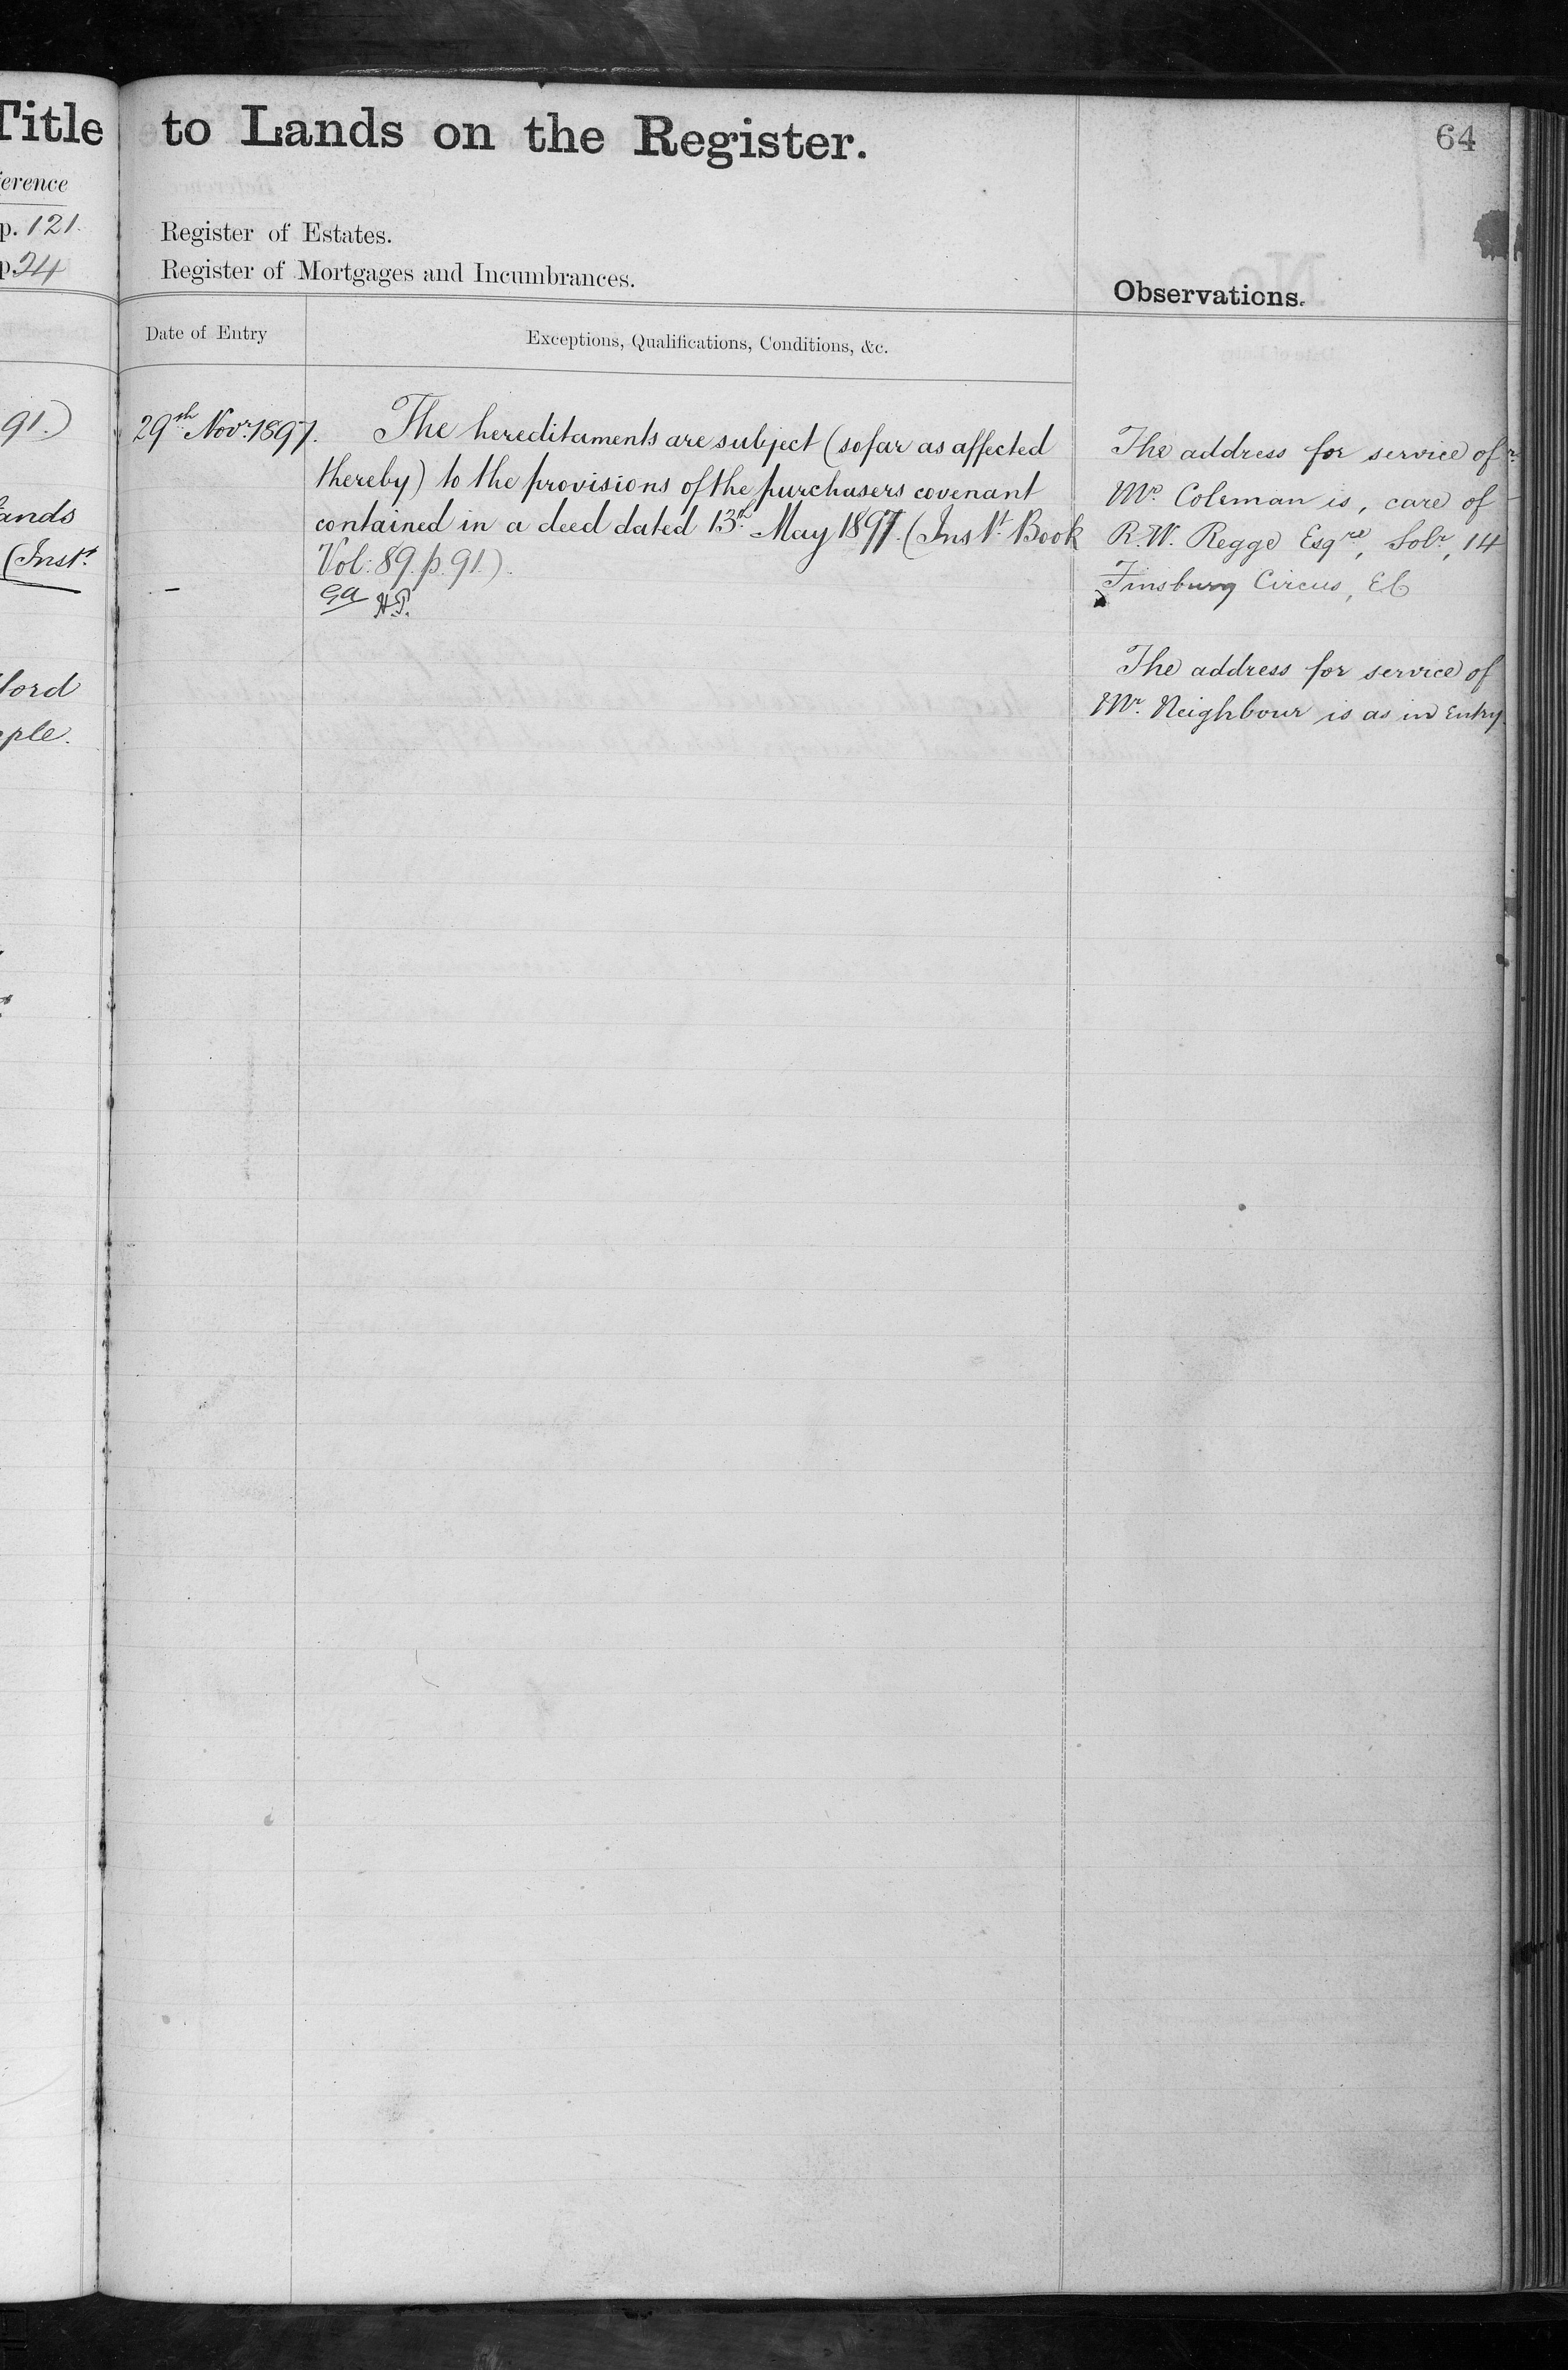 Title
ference
p. 121.
p. 24
91.)
ands
(Inst.
ford
ple.
to Lands on the Register.
64
Register of Estates.
Register of Mortgages and Incumbrances.
Observations.
Date of Entry
Exceptions, Qualifications, Conditions, &c.
29th Novr. 1897.
The hereditaments are subject (so far as affected
thereby) to the provisions of the purchasers covenant
contained in a deed dated 13th May 1897. (Inst. Book
Vol: 89. p. 91.).
H.P.
The address for service of
Mr. Coleman is, care of
R.W. Regge Esqre, Solr, 14
Finsbury Circus, EC
The address for service of
Mr. Neighbour is as in Entry.